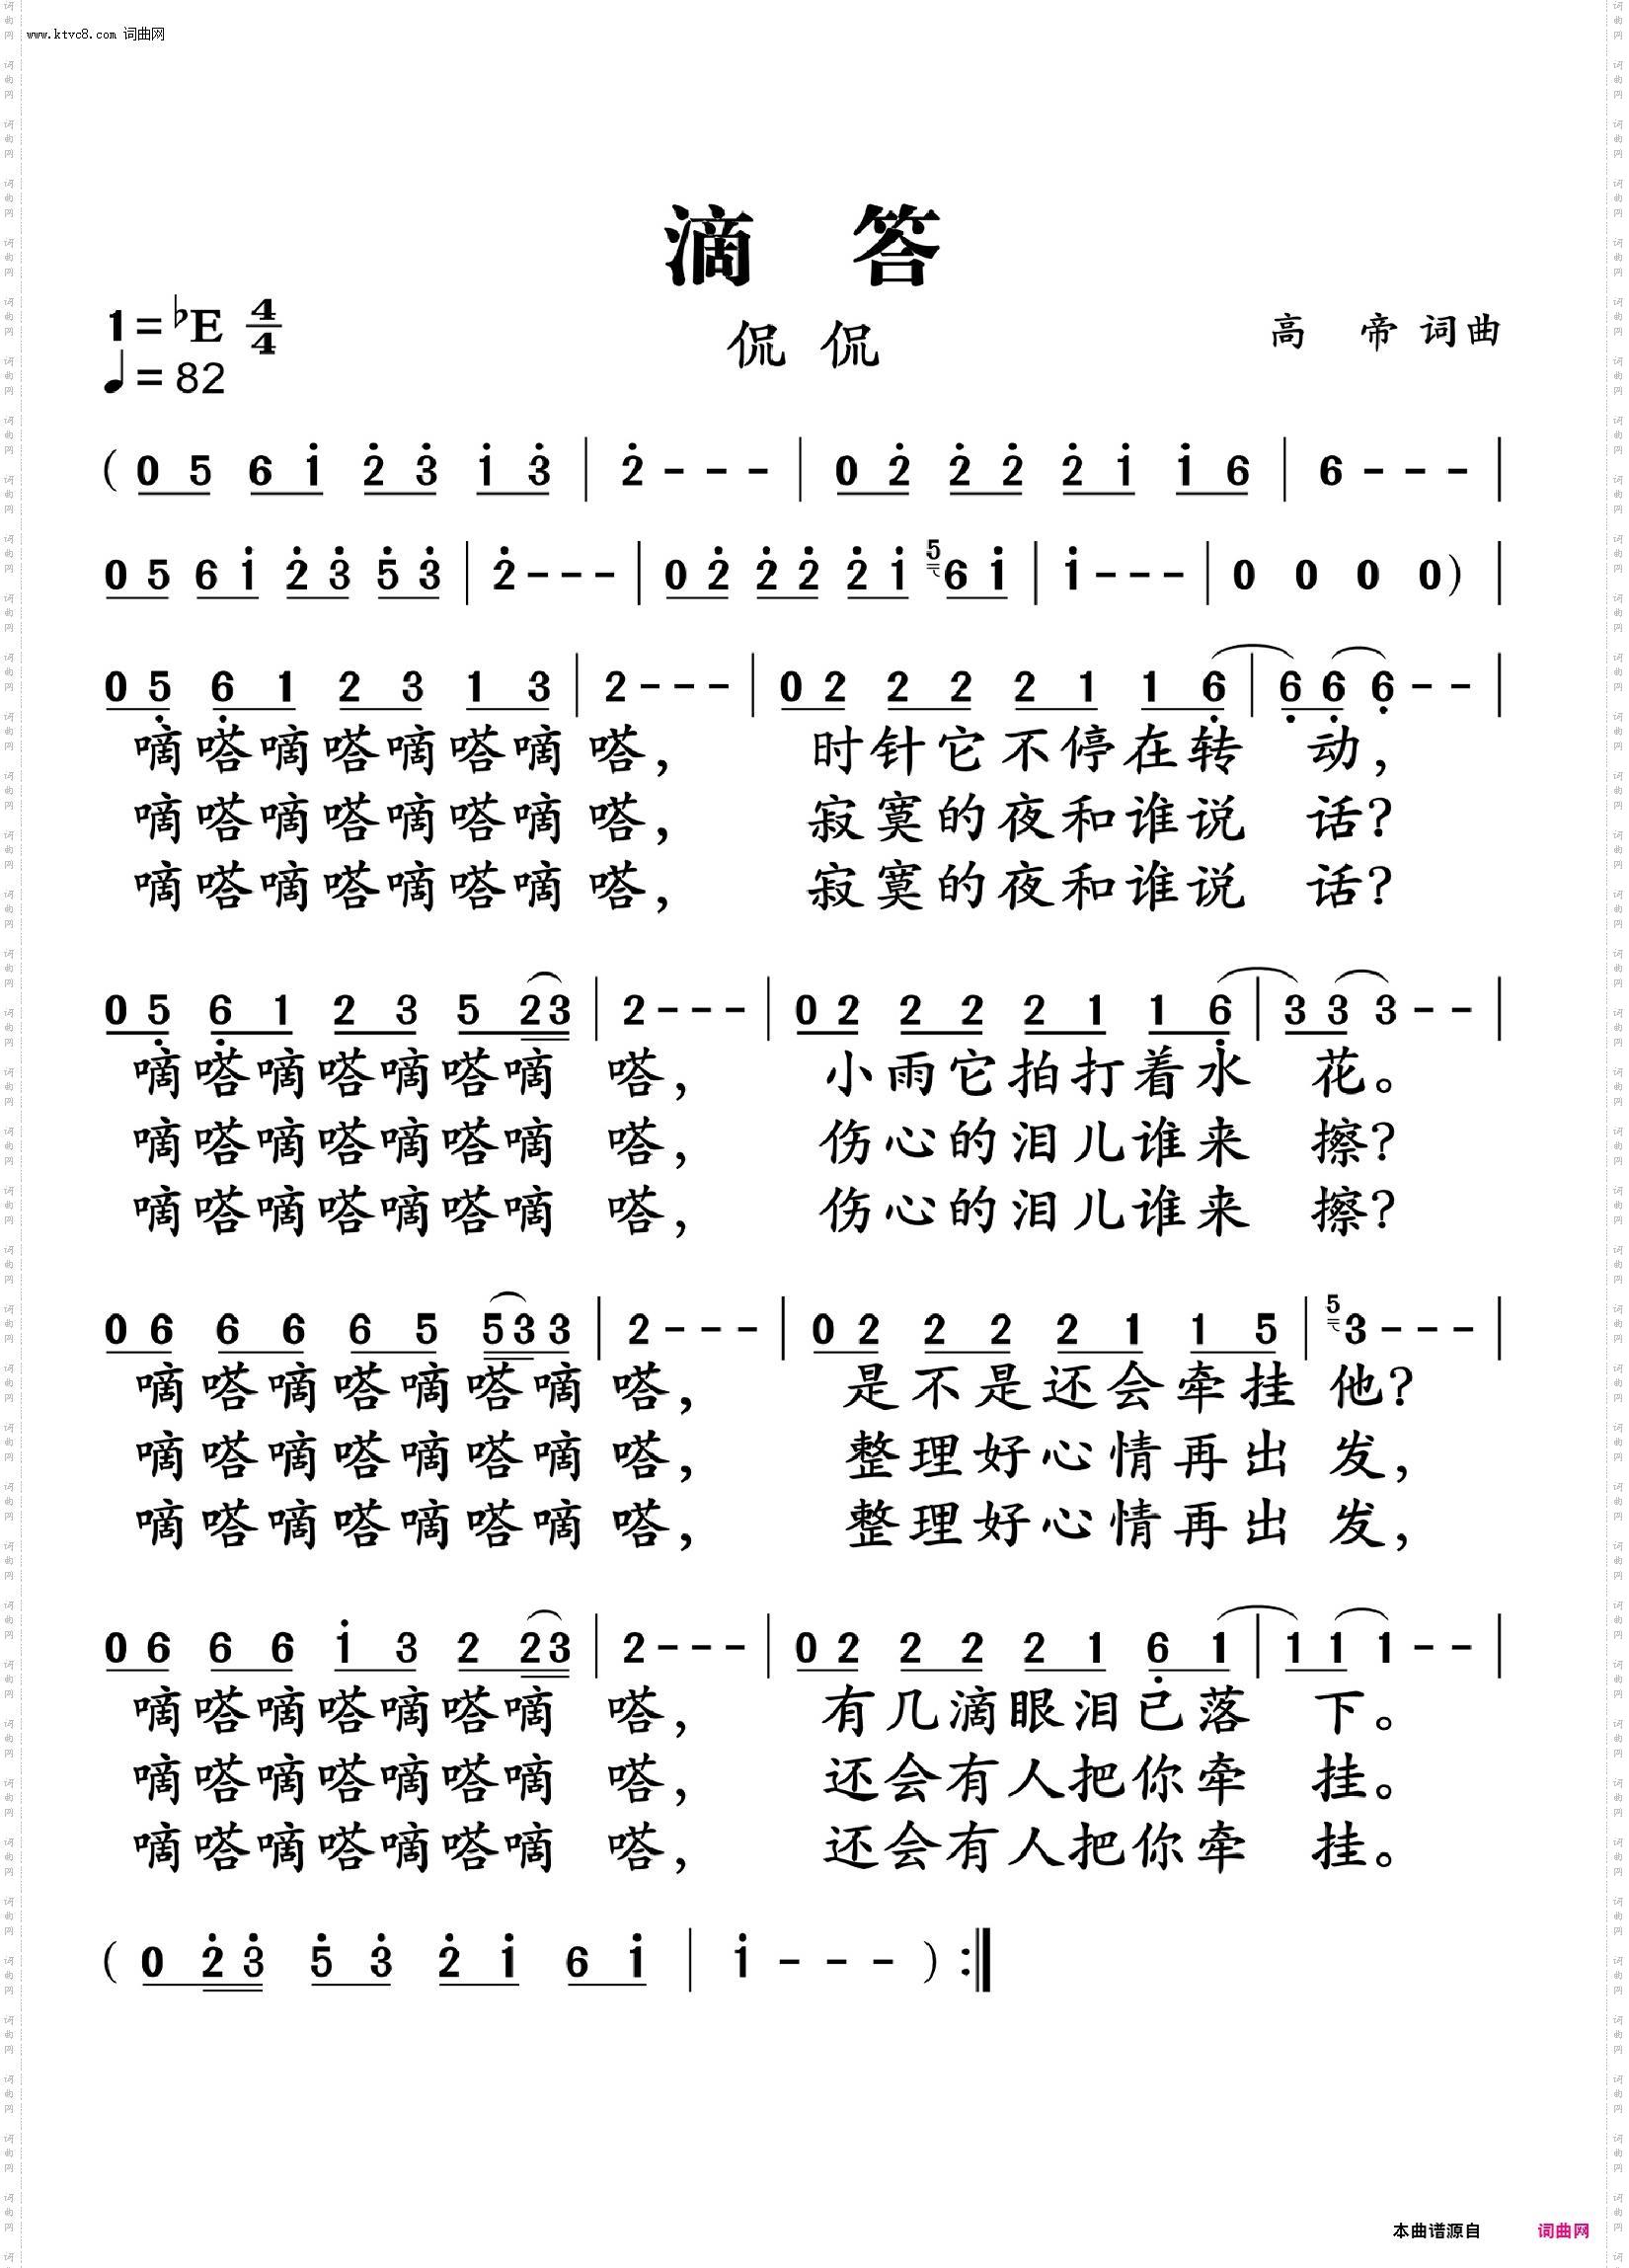 www.ktvc8.com 词曲网
滴 答
1=♭E 4/4
侃 侃
高 帝 词曲
♩= 82
( 0 5 6 1̇ 2̇ 3̇ 1̇ 3̇ | 2̇ - - - | 0 2̇ 2̇ 2̇ 2̇ 1̇ 1̇ 6 | 6 - - - |
0 5 6 1̇ 2̇ 3̇ 5̇ 3̇ | 2̇ - - - | 0 2̇ 2̇ 2̇ 2̇ 1̇ 5 6 1̇ | 1̇ - - - | 0 0 0 0 ) |
0 5̣ 6̣ 1 2 3 1 3 | 2 - - - | 0 2 2 2 2 1 1 6̣ | 6̣ 6̣ 6̣ - - |
嘀嗒嘀嗒嘀嗒嘀 嗒, 时针它不停在转 动,
嘀嗒嘀嗒嘀嗒嘀 嗒, 寂寞的夜和谁说 话?
嘀嗒嘀嗒嘀嗒嘀 嗒, 寂寞的夜和谁说 话?
0 5̣ 6̣ 1 2 3 5 2 3 | 2 - - - | 0 2 2 2 2 1 1 6̣ | 3 3 3 - - |
嘀嗒嘀嗒嘀嗒嘀 嗒, 小雨它拍打着水 花。
嘀嗒嘀嗒嘀嗒嘀 嗒, 伤心的泪儿谁来 擦?
嘀嗒嘀嗒嘀嗒嘀 嗒, 伤心的泪儿谁来 擦?
0 6 6 6 6 5 5 3 3 | 2 - - - | 0 2 2 2 2 1 1 5 | 5 3 - - - |
嘀嗒嘀嗒嘀嗒嘀 嗒, 是不是还会牵挂 他?
嘀嗒嘀嗒嘀嗒嘀 嗒, 整理好心情再出 发,
嘀嗒嘀嗒嘀嗒嘀 嗒, 整理好心情再出 发,
0 6 6 6 1̇ 3 2 2 3 | 2 - - - | 0 2 2 2 2 1 6̣ 1 | 1 1 1 - - |
嘀嗒嘀嗒嘀嗒嘀 嗒, 有几滴眼泪已落 下。
嘀嗒嘀嗒嘀嗒嘀 嗒, 还会有人把你牵 挂。
嘀嗒嘀嗒嘀嗒嘀 嗒, 还会有人把你牵 挂。
( 0 2̇ 3̇ 5̇ 3̇ 2̇ 1̇ 6 1̇ | 1̇ - - - ) :‖
本曲谱源自 词曲网